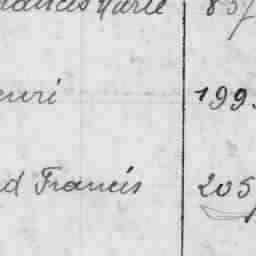 Francis Marie 857
enri 199.
d Francis 205